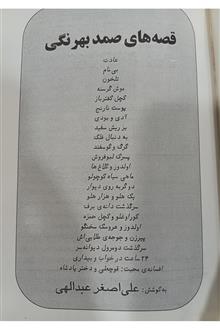 قصه‌های صمد بهرنگی
عادت
بی‌نام
تلخون
موش گرسنه
کچل کفترباز
پوست نارنج
آدی و بودی
بز ریش سفید
به دنبال فلک
گرگ و گوسفند
پسرک لبوفروش
اولدوز و کلاغ‌ها
ماهی سیاه کوچولو
دو گربه روی دیوار
یک هلو و هزار هلو
سرگذشت دانه‌ی برف
کوراوغلو و کچل حمزه
اولدوز و عروسک سخنگو
پیرزن و جوجه‌ی طلایی‌اش
سرگذشت دومرول دیوانه‌سر
۲۴ ساعت در خواب و بیداری
افسانه‌ی محبت: قوچعلی و دختر پادشاه
به‌کوشش: علی‌اصغر عبدالهی